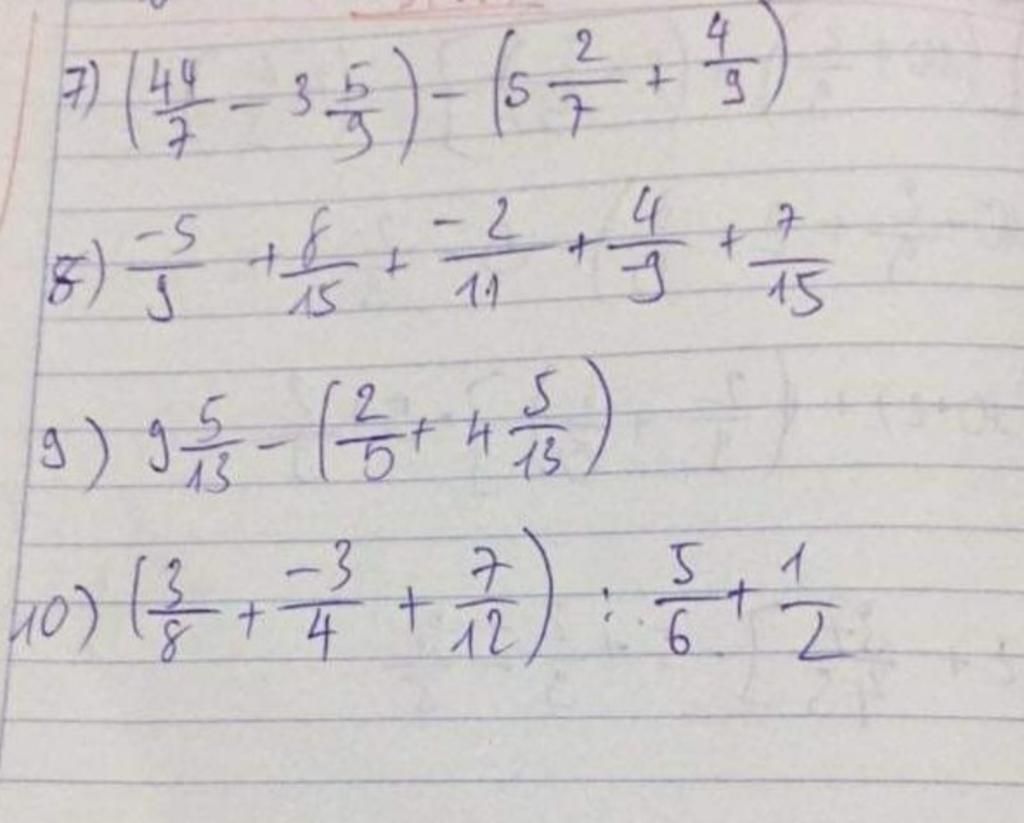 7) (44/7 - 3 5/9) - (5 2/7 + 4/9)
8) -5/9 + 8/15 + -2/11 + 4/-9 + 7/15
9) 9 5/13 - (2/5 + 4 5/13)
10) (3/8 + -3/4 + 7/12) : 5/6 + 1/2